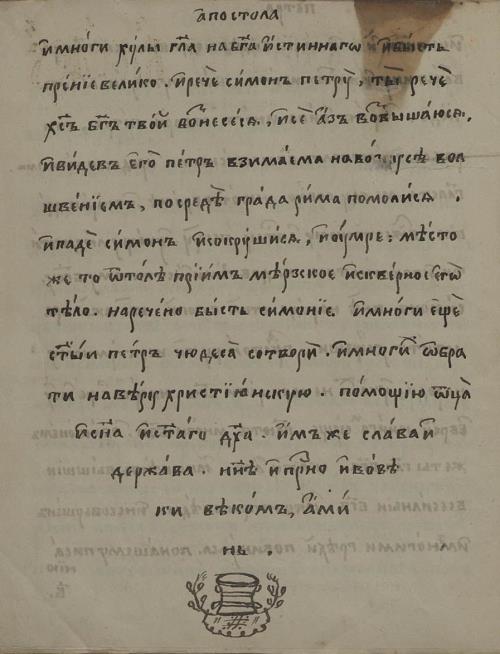 апостола
и҆мно́ги хꙋ́лы гл҃а на бг҃а и҆́стиннаго и҆бы́сть
пре́нїе вели́ко. и҆речѐ си́монъ петрꙋ̀, ты̀ речѐ
хс҃ъ бг҃ъ тво́й вознесе́сѧ, и҆ се а҆́зъ возвыша́юсѧ,
и҆ви́девъ е҆го̀ пе́тръ взима́ема на во вол
шве́нїемъ, посредѣ̀ гра́да ри́ма помоли́сѧ.
и҆падѐ си́монъ и҆сокрꙋши́сѧ, и҆оу҆́мре: мѣ́сто
же то ѿто́лѣ прїи́мъ ме́рзское и҆скве́рное е҆гѡ̀
тѣ́ло. нарече́но бы́сть симо́нїе. и҆мно́ги е҆щѐ
ст҃ы́и пе́тръ чюдеса̀ сотворѝ. и҆мно́ги ѡ҆бра
ти на вѣ́рꙋ христїѧ́нскꙋю. по́мощїю ѻ҆ц҃а̀
и҆сн҃а и҆ст҃а́го дх҃а. и҆́мъ же сла́ва и҆
держа́ва. нн҃ѣ и҆при́сно и҆вовѣ
ки вѣко́мъ, а҆ми́
нь.